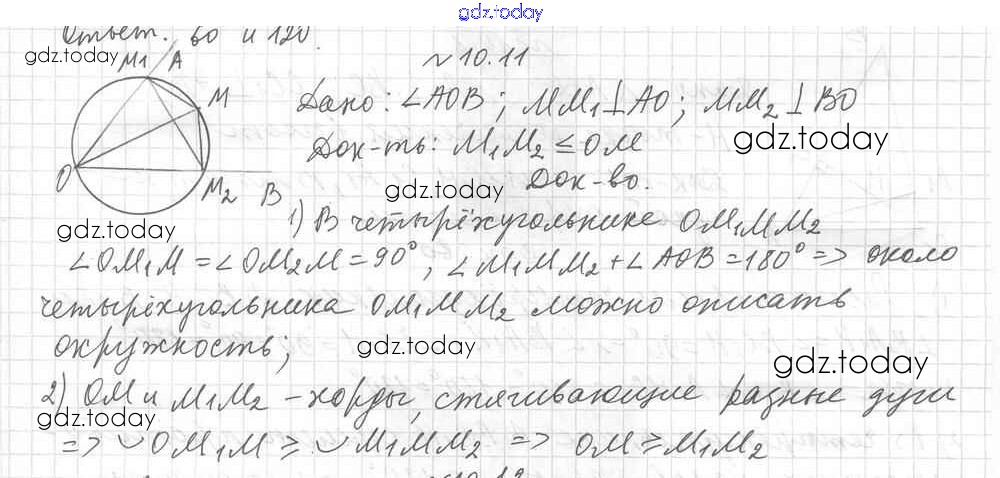 gdz.today
Ответ. 60 и 120.
gdz.today
M1 A
M
O
M2 B
№ 10.11
Дано: ∠AOB; MM1⊥AO; MM2⊥BO
gdz.today
Док-ть: M1M2 ≤ OM
Док-во.
gdz.today
1) В четырёхугольнике OM1MM2
gdz.today
∠OM1M = ∠OM2M = 90°, ∠M1MM2 + ∠AOB = 180° => около
четырёхугольника OM1MM2 можно описать
окружность;
gdz.today
gdz.today
2) OM и M1M2 – хорды, стягивающие разные дуги
gdz.today
=> ◡OM1M ≥ ◡M1MM2 => OM ≥ M1M2